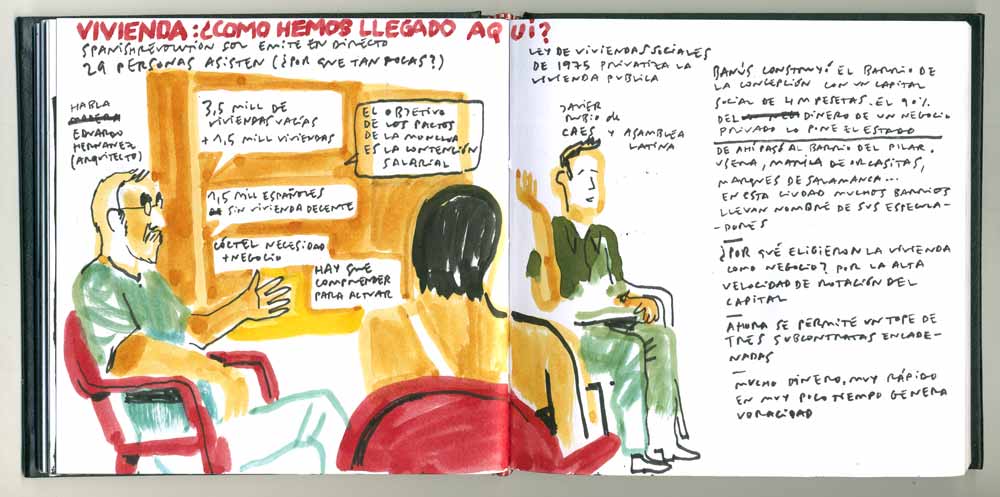 VIVIENDA: ¿COMO HEMOS LLEGADO AQUÍ?
SPANISHREVOLUTION SOL EMITE EN DIRECTO
29 PERSONAS ASISTEN (¿POR QUE TAN POCAS?)
HABLA
EDUARDO
HERNANEZ
(ARQUITECTO)
3,5 MILL DE
VIVIENDAS VACÍAS
+ 1,5 MILL VIVIENDAS
EL OBJETIVO
DE LOS PACTOS
DE LA MONCLOA
ES LA CONTENCIÓN
SALARIAL
1,5 MILL ESPAÑOLES
SIN VIVIENDA DECENTE
CÓCTEL NECESIDAD
+ NEGOCIO
HAY QUE
COMPRENDER
PARA ACTUAR
LEY DE VIVIENDAS SOCIALES
DE 1975 PRIVATIZA LA
VIVIENDA PUBLICA
JAVIER
RUBIO de
CAES Y ASAMBLEA
LATINA
BANÚS CONSTRUYÓ EL BARRIO DE
LA CONCEPCIÓN CON UN CAPITAL
SOCIAL DE 4 M PESETAS. EL 90%
DEL DINERO DE UN NEGOCIO
PRIVADO LO PONE EL ESTADO
DE AHÍ PASÓ AL BARRIO DEL PILAR,
USERA, DE ORCASITAS,
MARQUES DE SALAMANCA...
EN ESTA CIUDAD MUCHOS BARRIOS
LLEVAN NOMBRE DE SUS ESPECULA-
-DORES
¿POR QUÉ ELIGIERON LA VIVIENDA
COMO NEGOCIO? POR LA ALTA
VELOCIDAD DE ROTACIÓN DEL
CAPITAL
AHORA SE PERMITE UN TOPE DE
TRES SUBCONTRATAS ENCADE-
NADAS
MUCHO DINERO, MUY RÁPIDO
EN MUY POCO TIEMPO GENERA
VORACIDAD